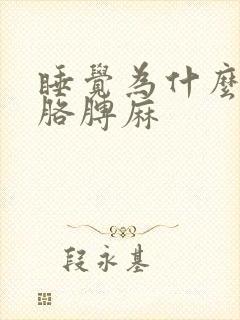 睡覺為什麼
胳脾麻
段永基